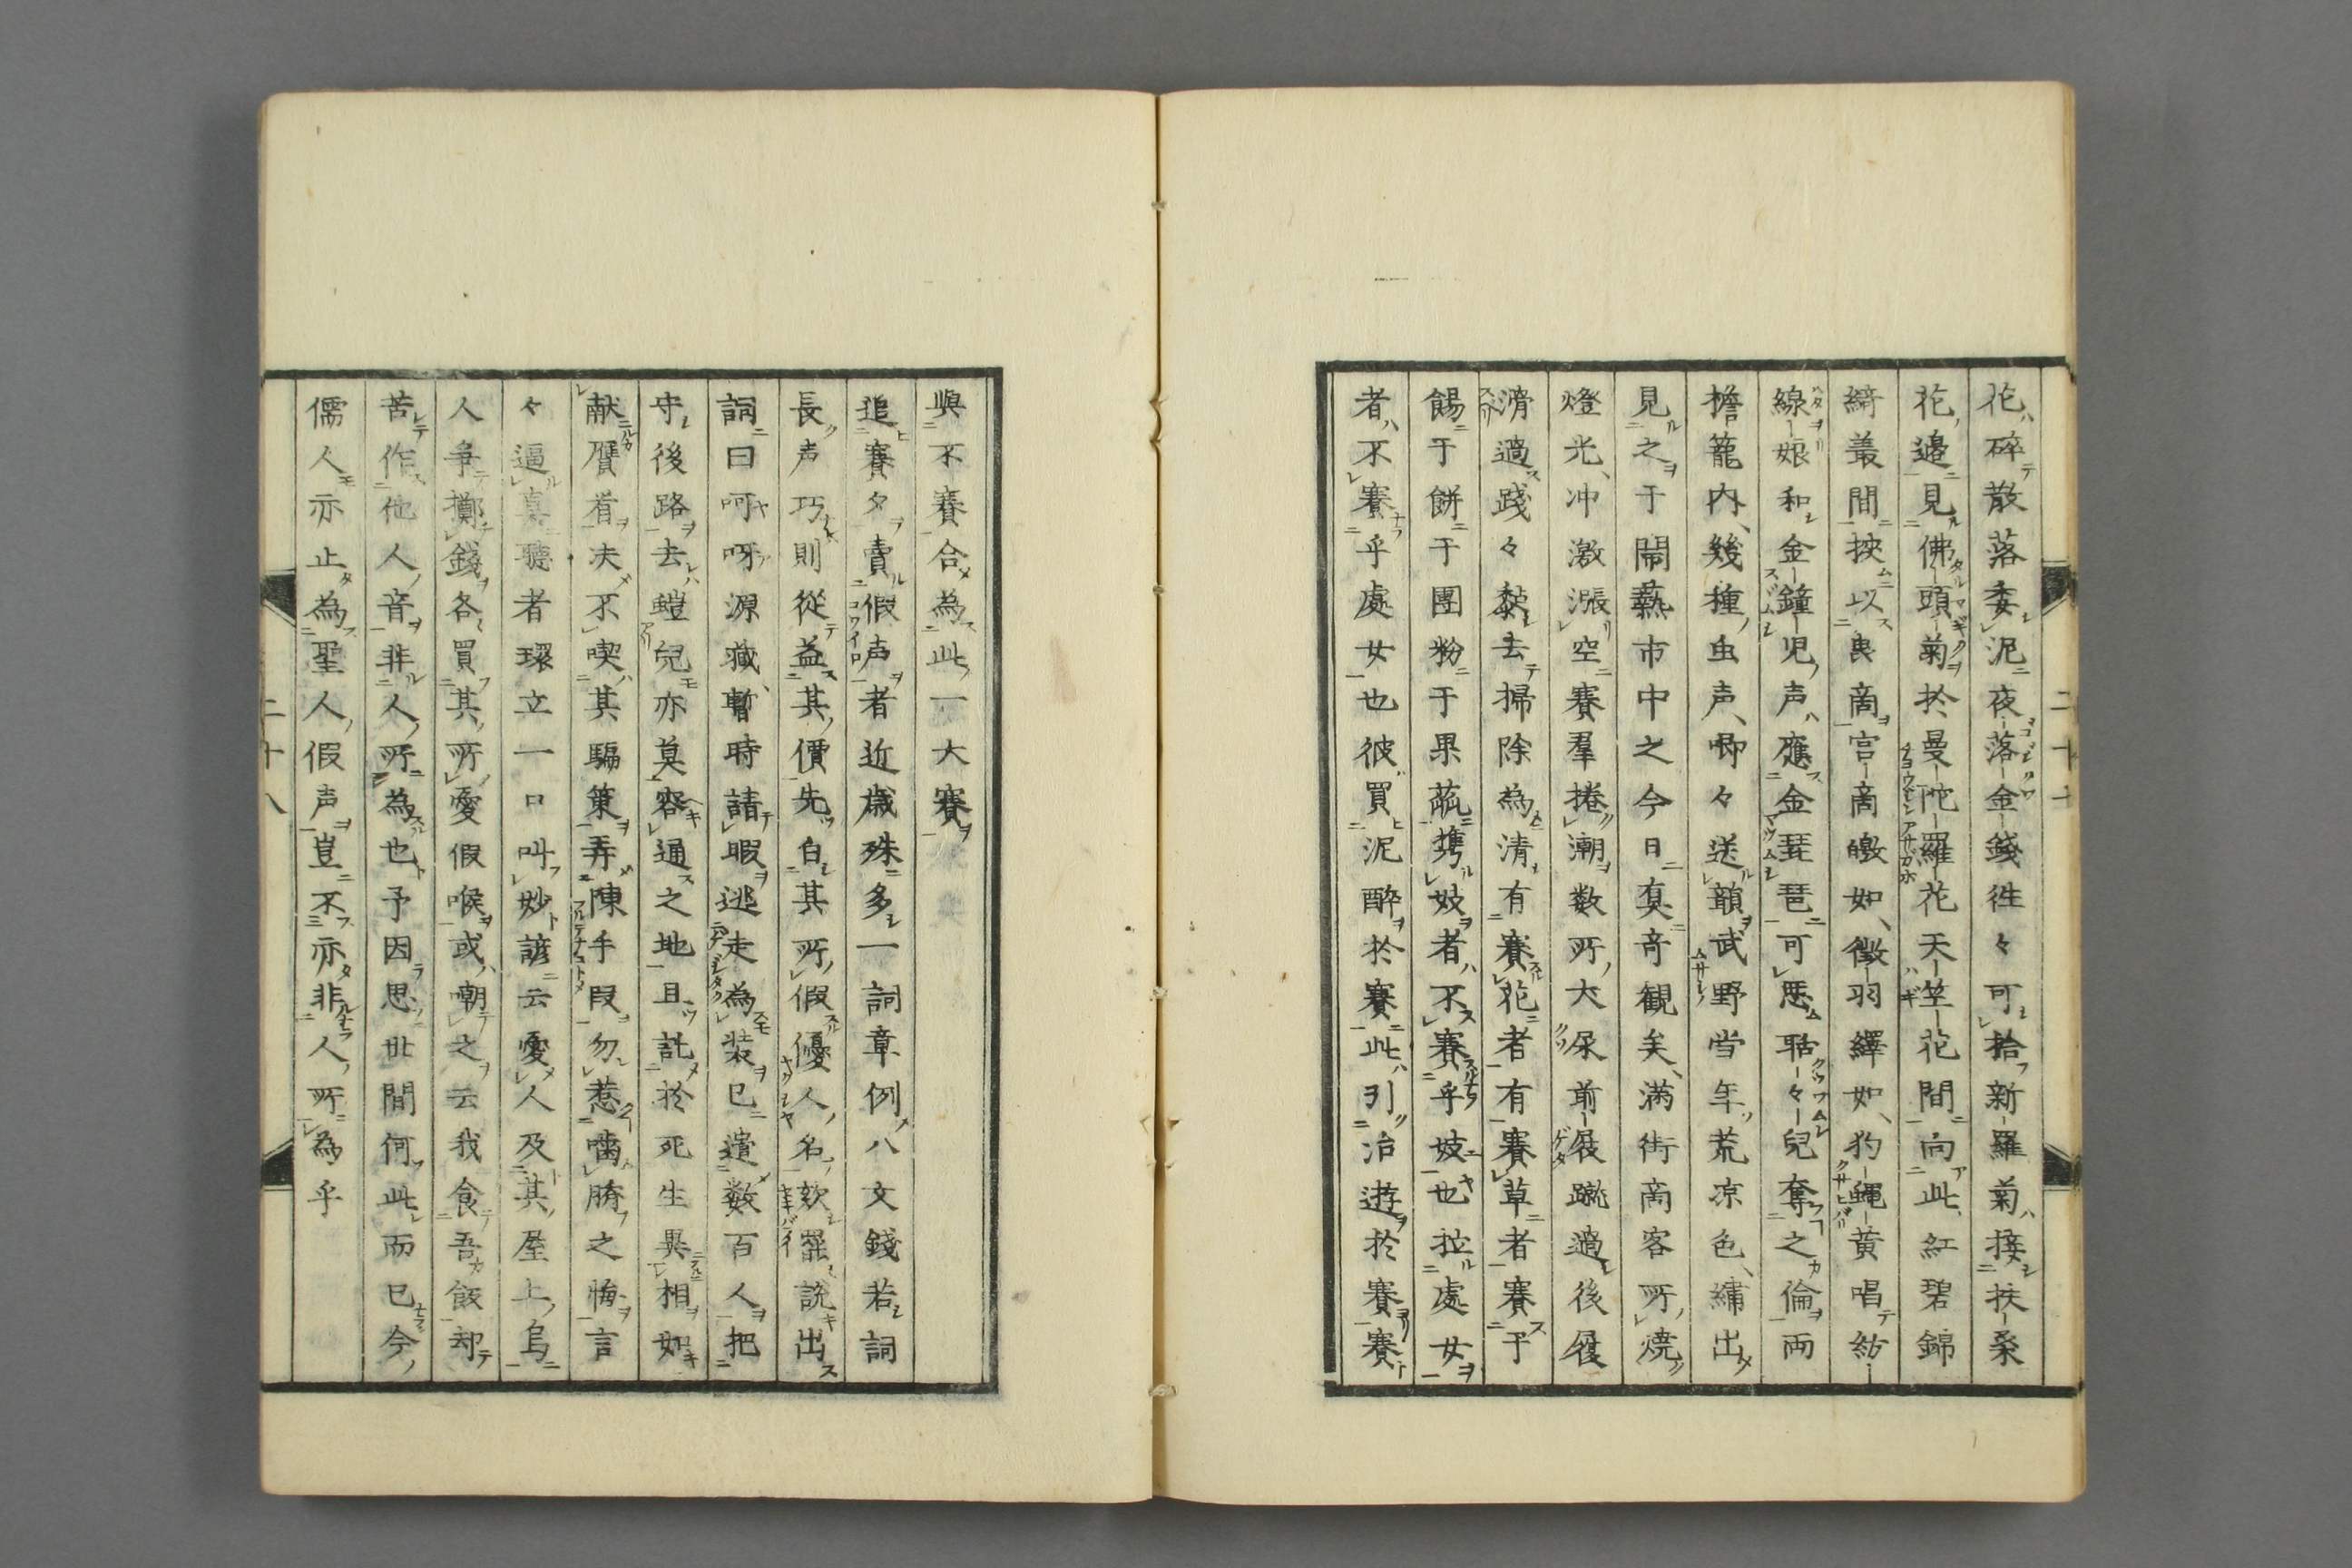 花碎散落委泥夜落金錢徃々可拾新羅菊接扶桒
花邉見佛頭菊於曼陀羅花天竺花間向此紅碧錦
綺叢間挾以䖝啇宮啇皦如徵羽繹如豹蝿黄唱紡
線娘和金鐘児声應金琵琶可惡聒々兒奪之倫両
擔籠内幾種虫声喞々送韻武野當年荒凉色繡出
見之于鬧𤍠市中之今日真竒観矣満街啇客所焼
燈光冲激漲空賽羣捲潮数所大屎前屐蹴過後履
滑過踐々黏去掃除為清有賽花者有賽草者賽于
餳于餅于團粉于果蓏携妓者不賽乎妓也拉處女
者不賽乎處女也彼買泥醉於賽此引冶遊於賽賽
二十七
與不賽合為此一大賽
追賽夕賣假声者近歲殊多一詞章例八文錢若詞
長声巧則從益其價先白其所假優人名欬罷説出
詞曰呵呀源藏暫時請暇逃走為装已遣数百人把
守後路去螘兒亦莫容通之地且訛於死生異相如
献贋首夫不喫其騙策弄陳手段勿惹噛臍之悔言
々逼真聽者環立一口叫妙諺云愛人及其屋上烏
人争擲錢各買其所愛假喉或嘲之云我食吾飯却
苦作他人音非人所為也予因思世間何此而已今
儒人亦止為聖人假声豈不亦非人所為乎
二十八